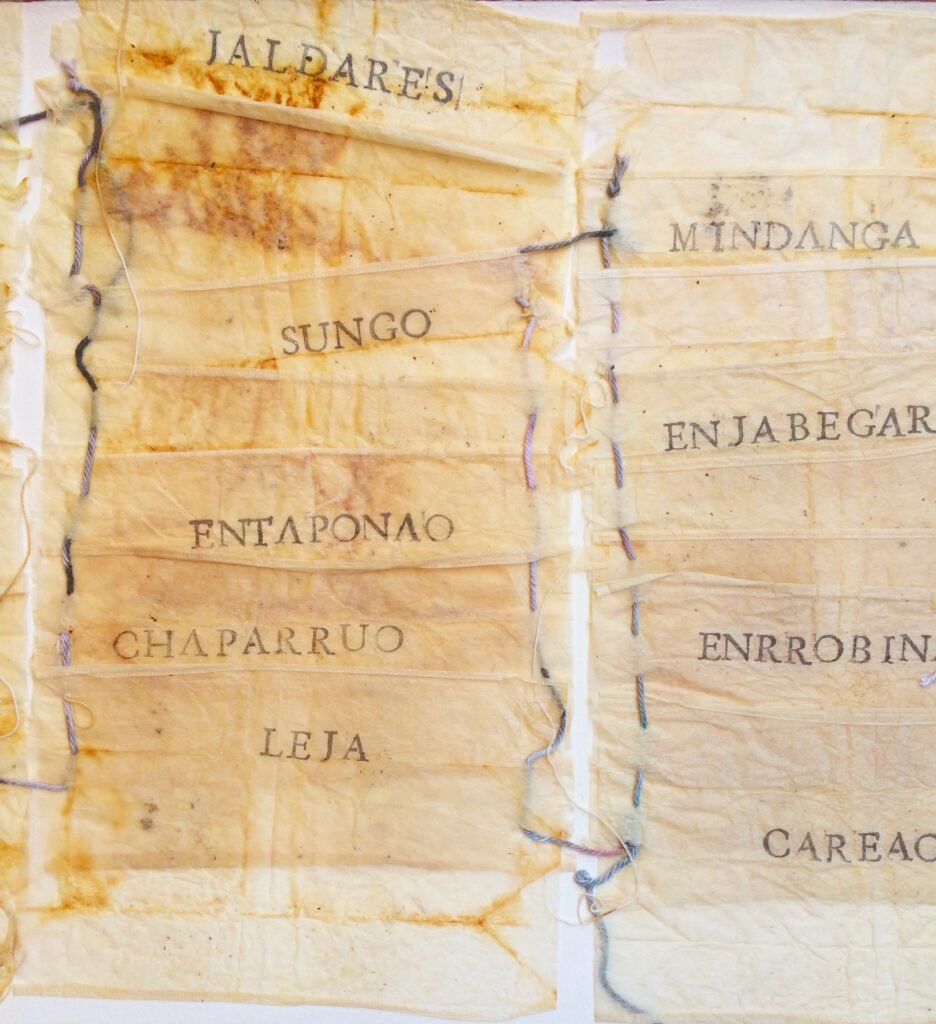 JALDARES
SUNGO
ENTAPONAO
CHAPARRUO
LEJA
MINDANGA
ENJABEGAR
ENRROBINA
CAREAO